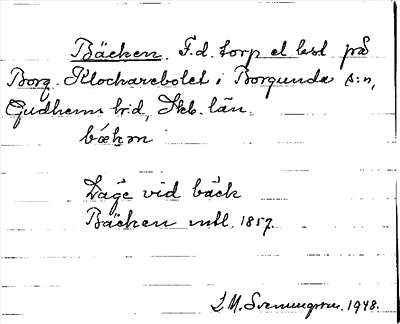 Bäcken. F.d. torp el. lert på
Borg. Klockarebolet i Borgunda s:n,
Gudhems hd, Skb. län.
bækɳ
Läge vid bäck
Bäcken mtl. 1857.
S. M. Svenungsson. 1948.